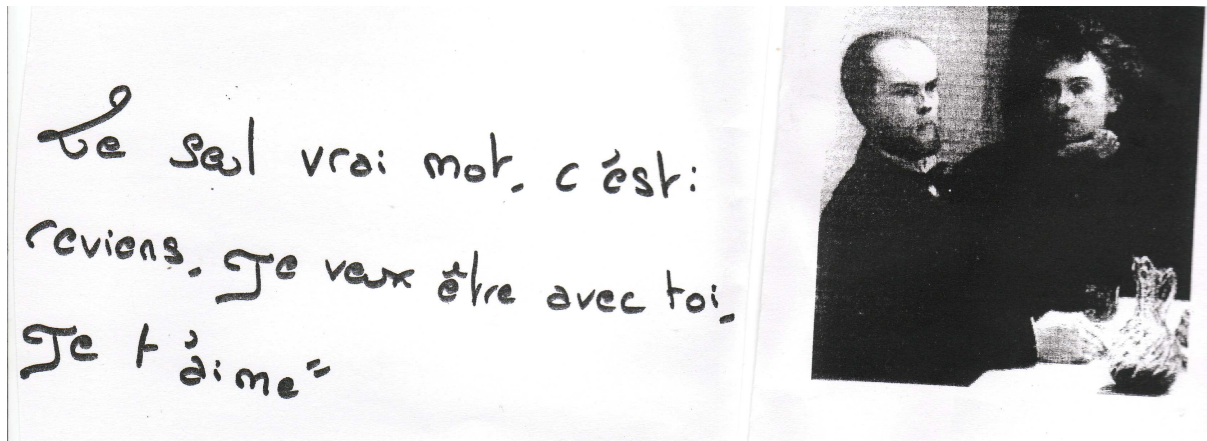 Le seul vrai mot, c'est:
reviens, Je veux être avec toi,
Je t'aime"